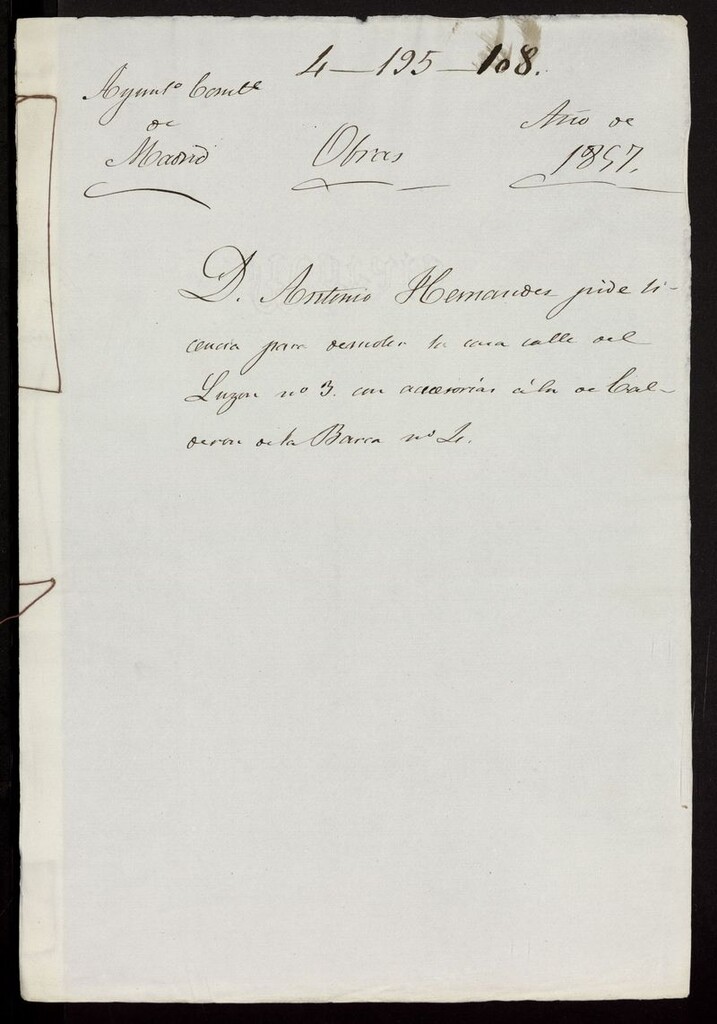 4-195-108.
Ayunt.º Const.l
de
Madrid
Obras
Año de
1857.
D. Antonio Hernandez pide li-
cencia para demoler la casa calle del
Luzon nº 3. con accesorias á la de Cal-
deron de la Barca nº 2.